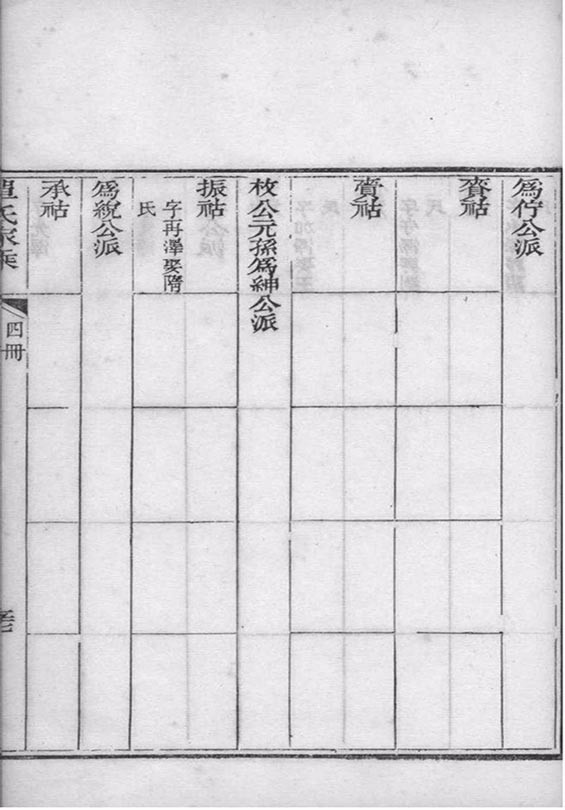 為佇公派
賚祜
賁祜
枚公元孫為紳公派
振祜
字再澤娶隋
氏
為統公派
承祜
四冊